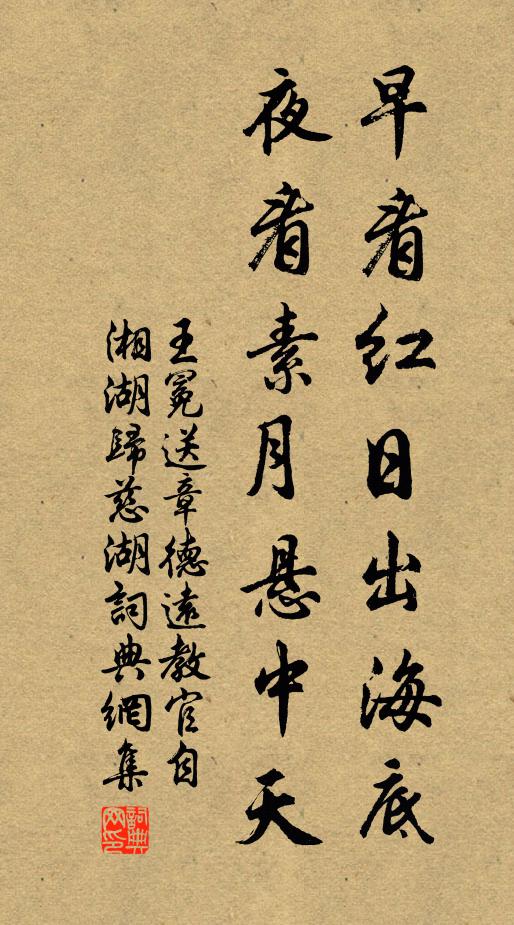 早看红日出海底
夜看素月悬中天
王冕送章德遠教官自
湘湖歸慈湖詞典網集
詞典网印